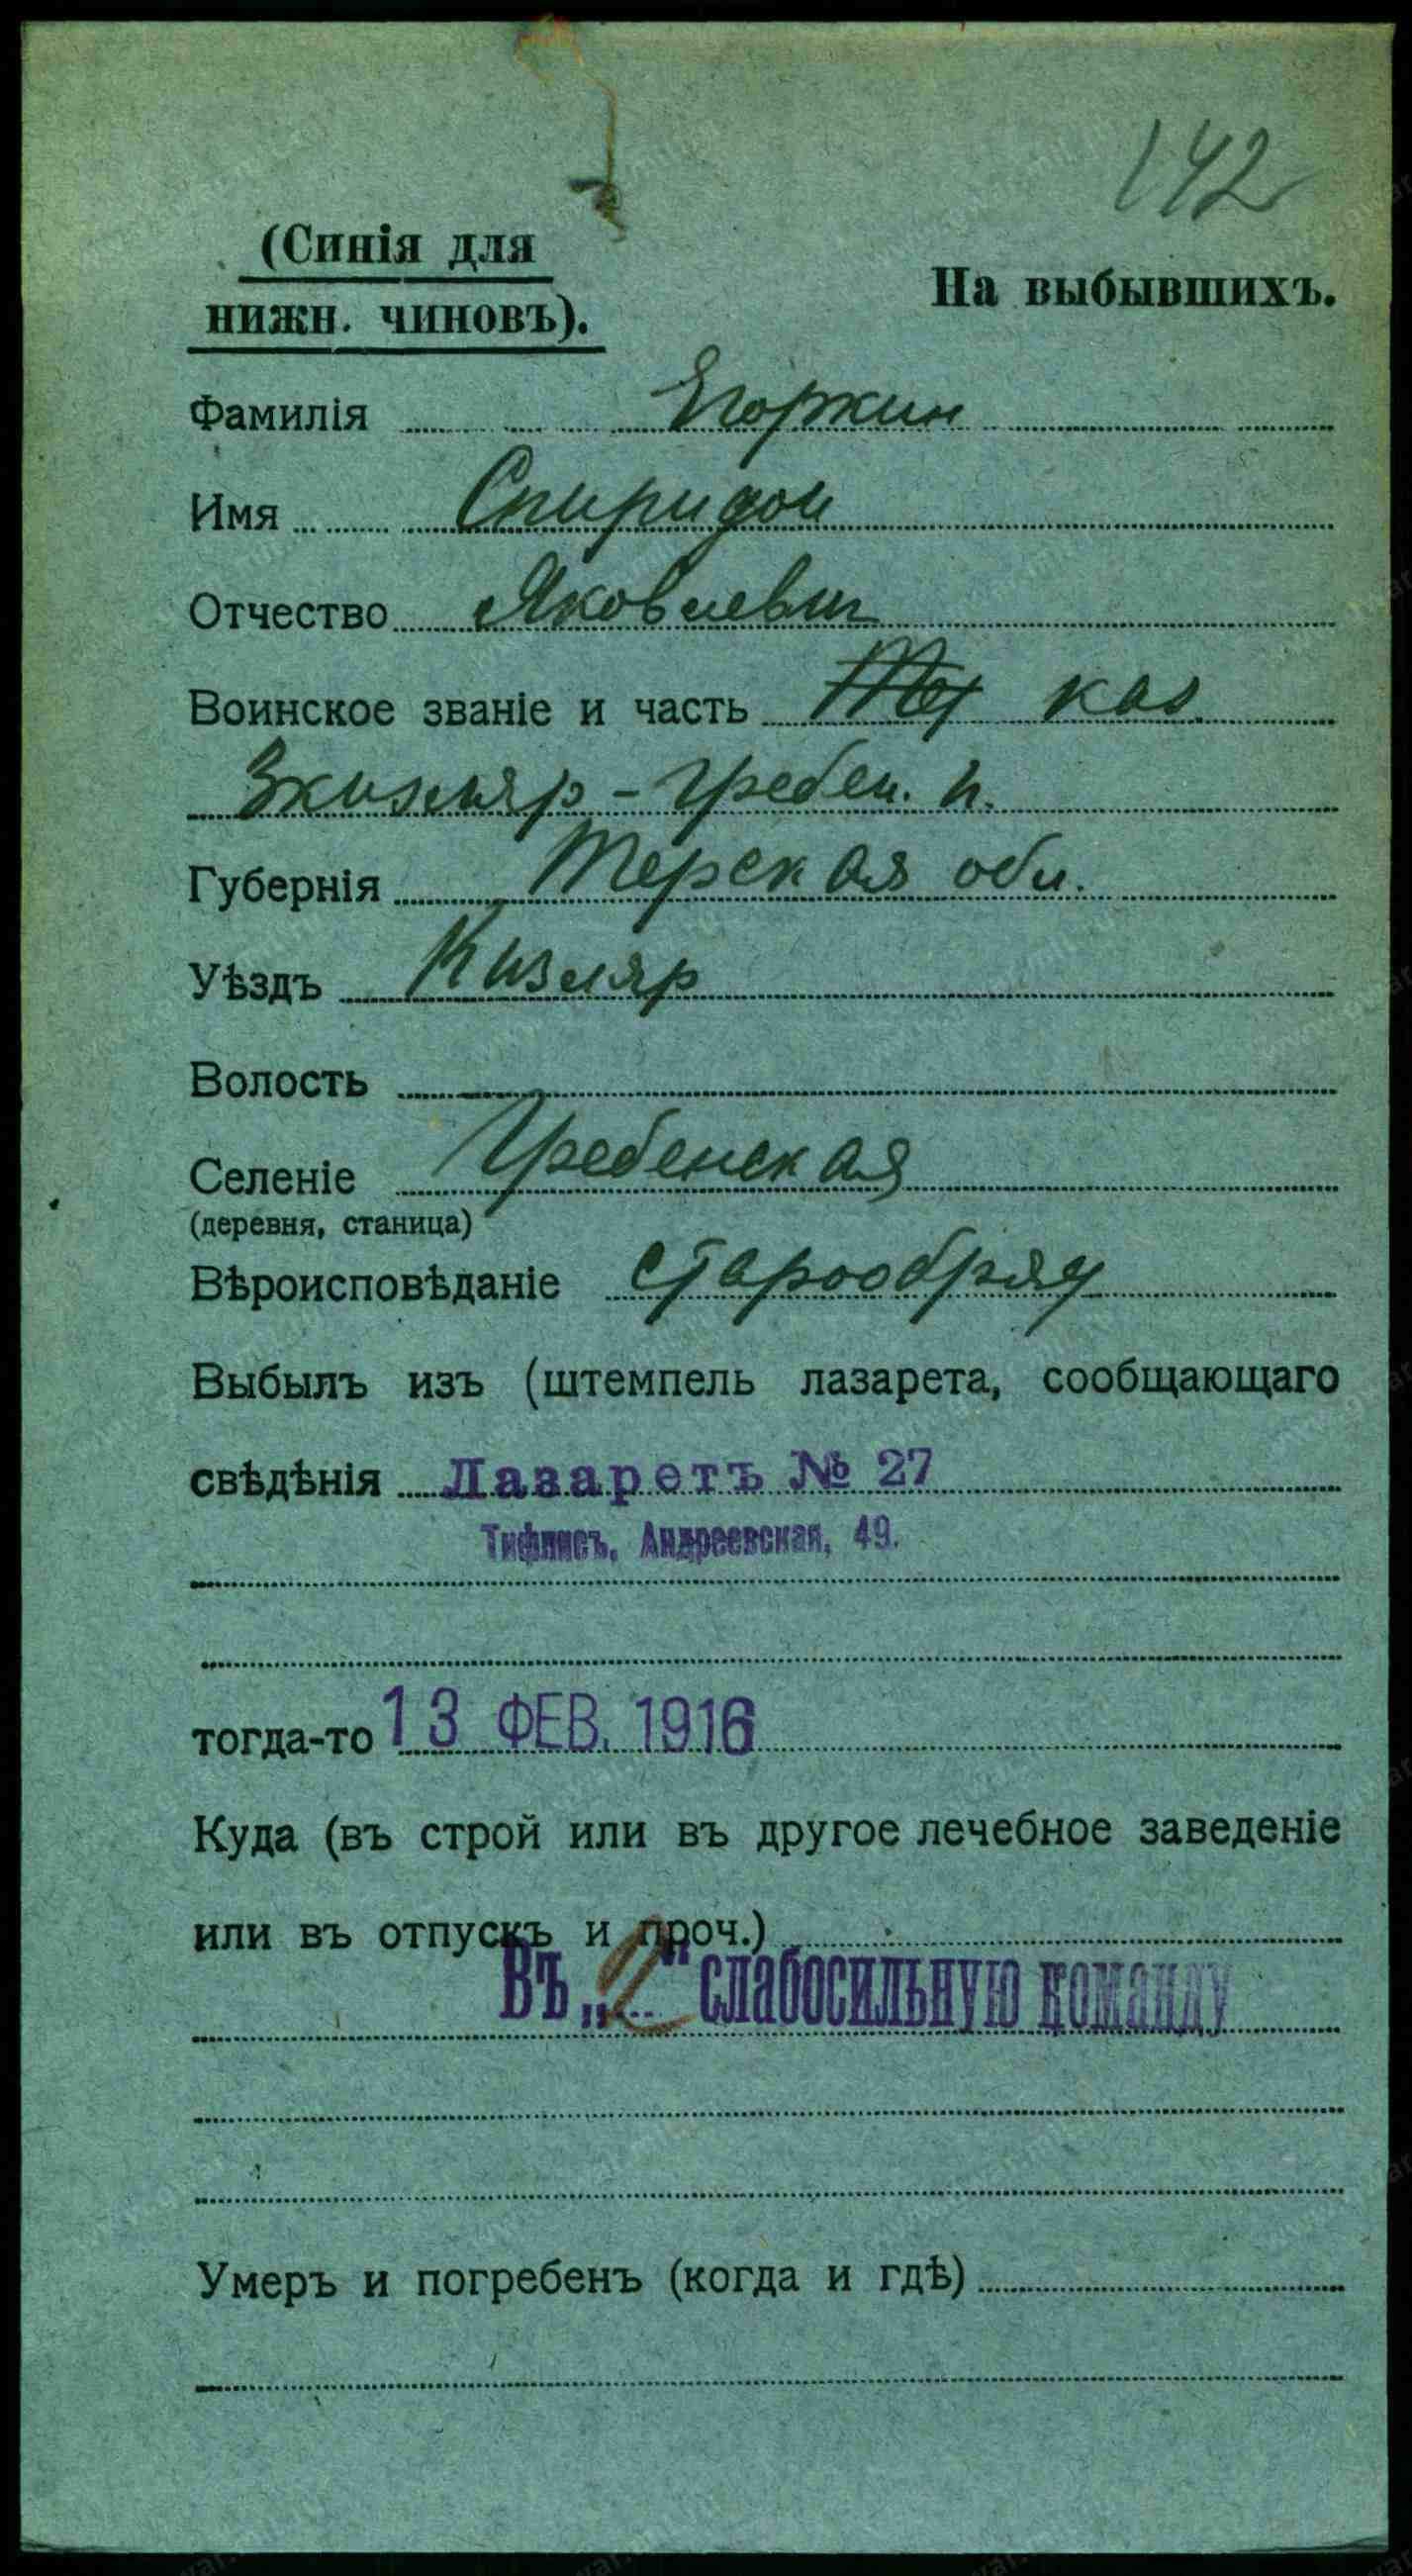 142
(Синія для
нижн. чиновъ).
На выбывшихъ.
Фамилія Егоркин
Имя Спиридон
Отчество Яковлевич
Воинское званіе и часть каз
3 кизляр-гребен. п.
Губернія Терская обл.
Уѣздъ Кизляр
Волость
Селеніе Гребенская
(деревня, станица)
Вѣроисповѣданіе старообряд
Выбылъ изъ (штемпель лазарета, сообщающаго
свѣдѣнія Лазаретъ № 27
Тифлисъ, Андреевская, 49.
тогда-то 13 ФЕВ. 1916
Куда (въ строй или въ другое лечебное заведеніе
или въ отпускъ и проч.)
Въ „2" слабосильную команду
Умеръ и погребенъ (когда и гдѣ)